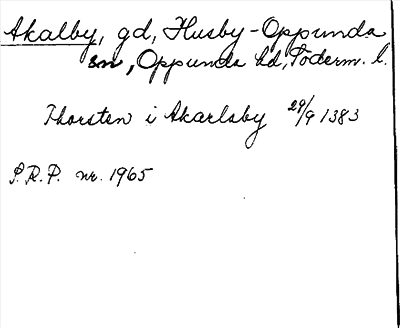 Akalby, gd, Husby-Oppunda
sn, Oppunda hd, Söderm. l.
Thorsten i Akarlaby 29/9 1383
S.R.P. nr. 1965